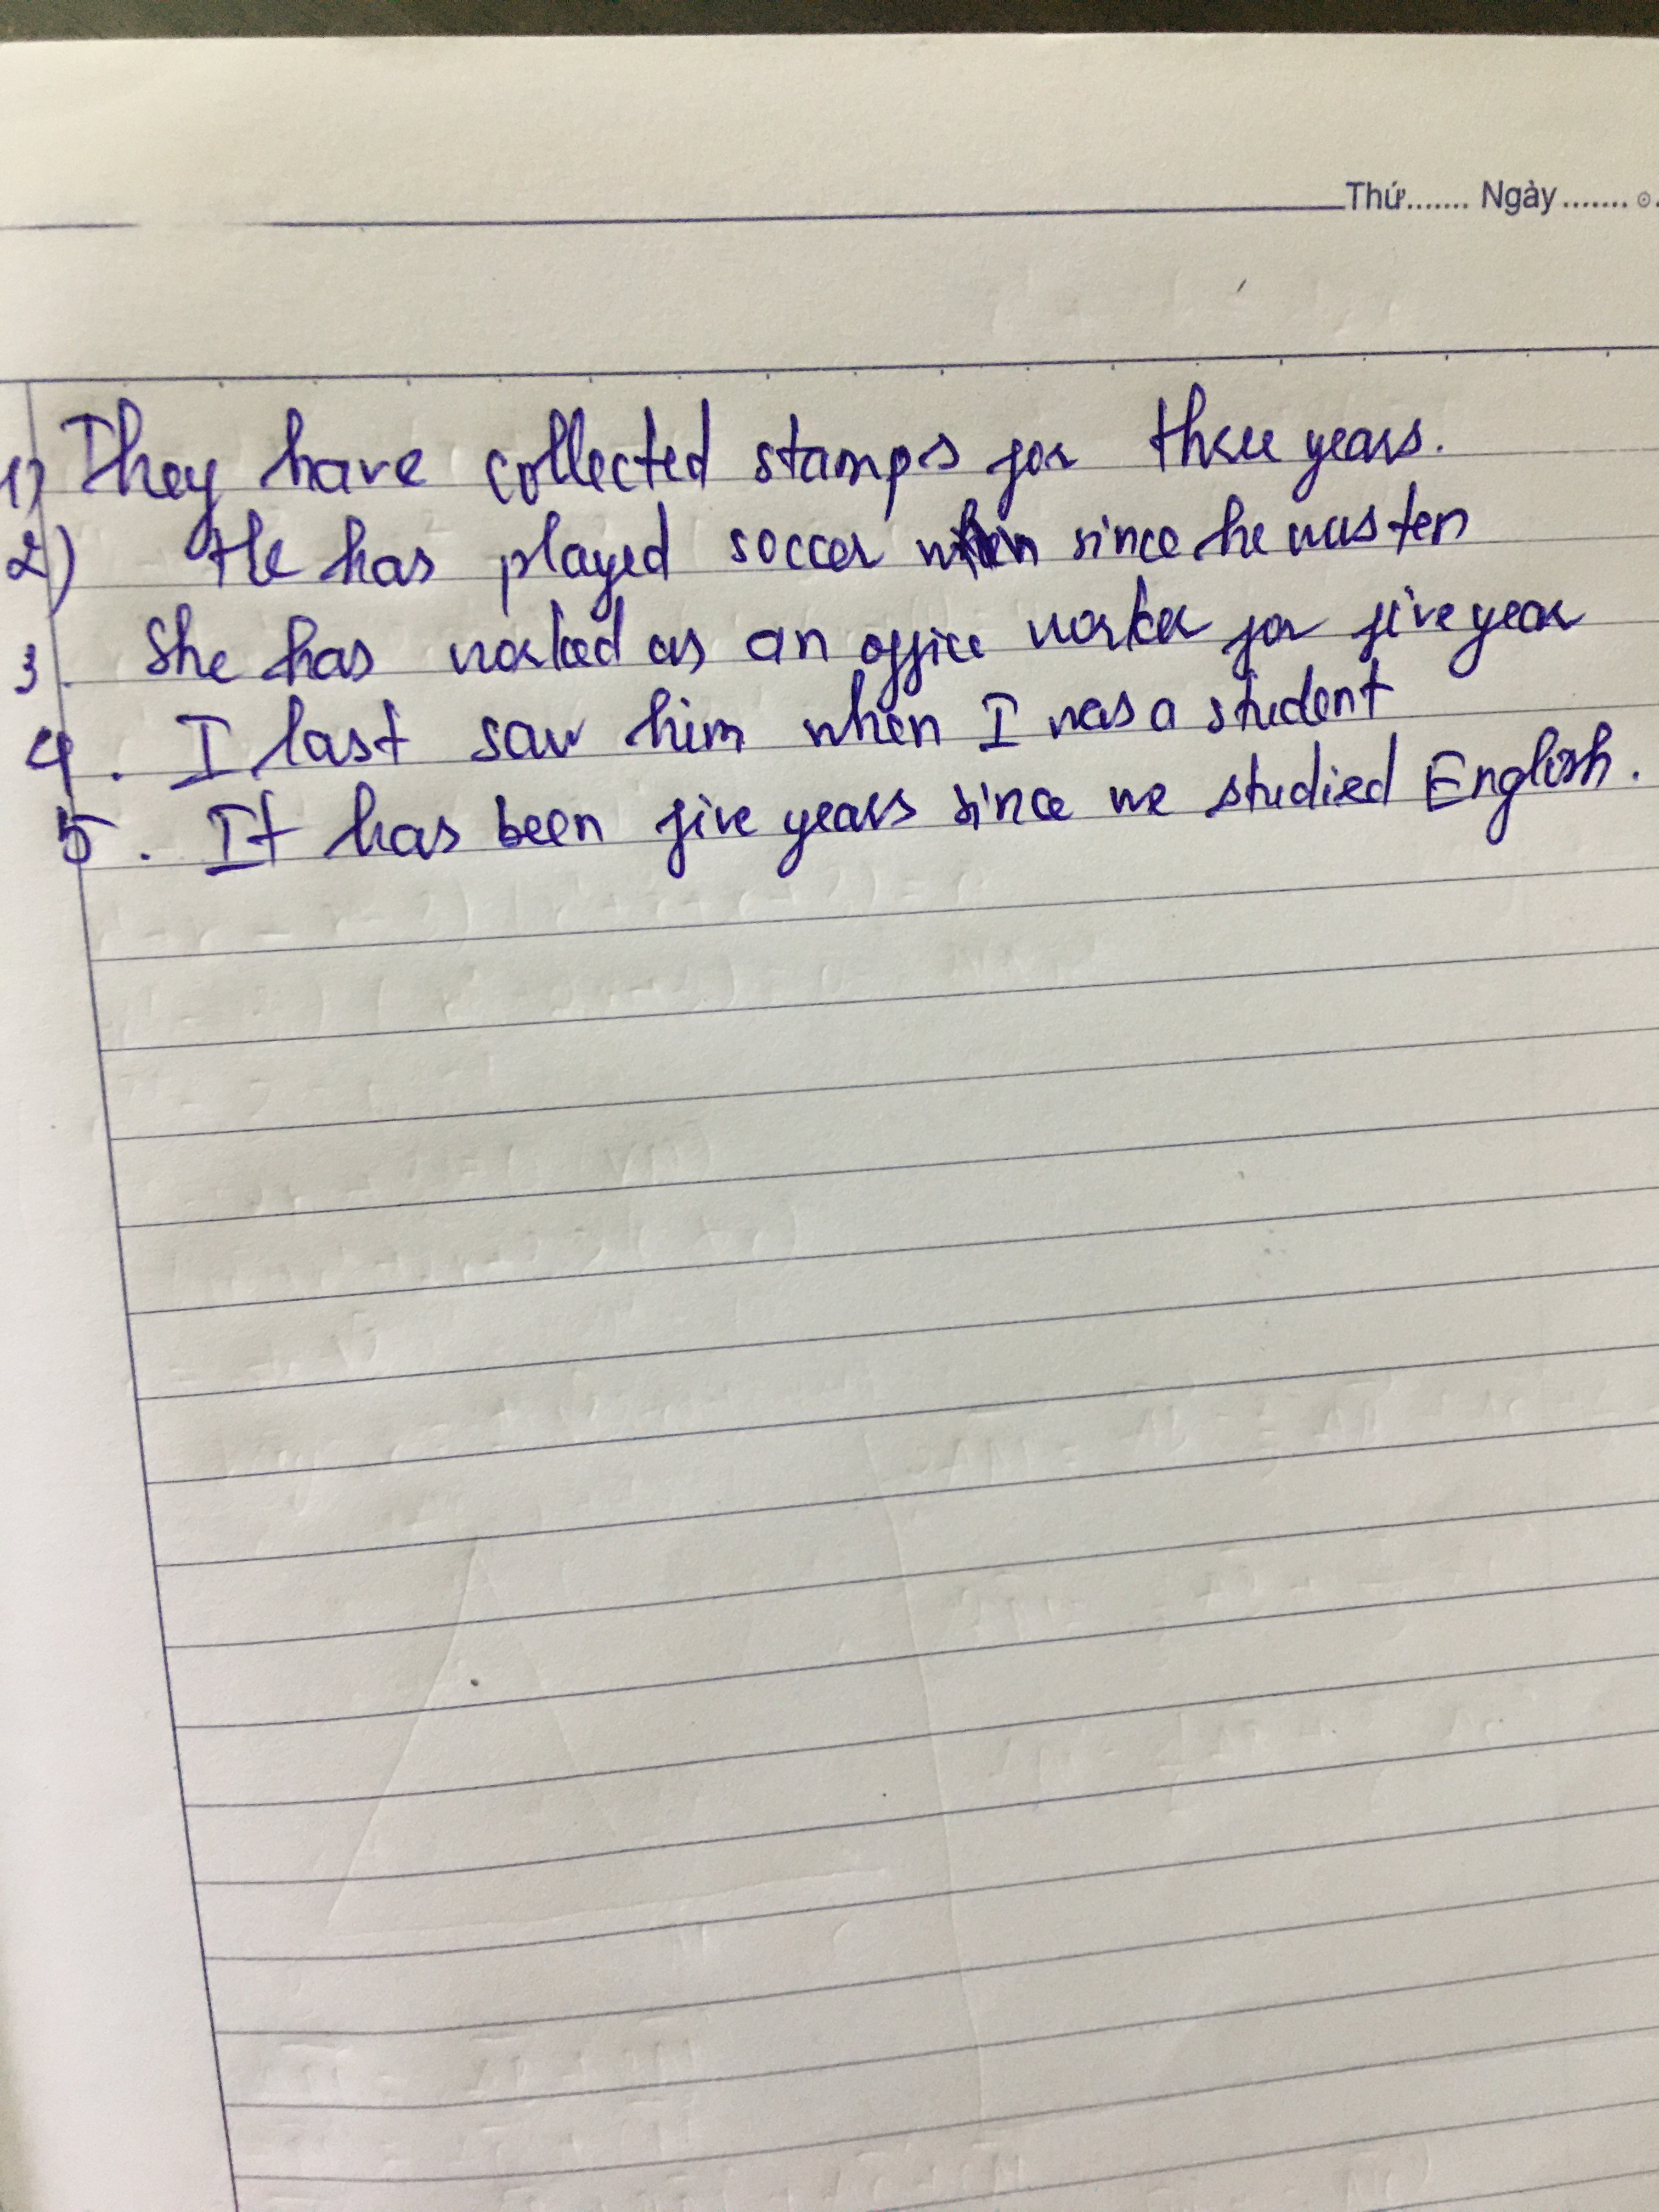 Thứ....... Ngày.......
1) They have collected stamps for three years.
2) He has played soccer since he was ten
3. She has worked as an office worker for five year
4. I last saw him when I was a student
5. It has been five years since we studied English.